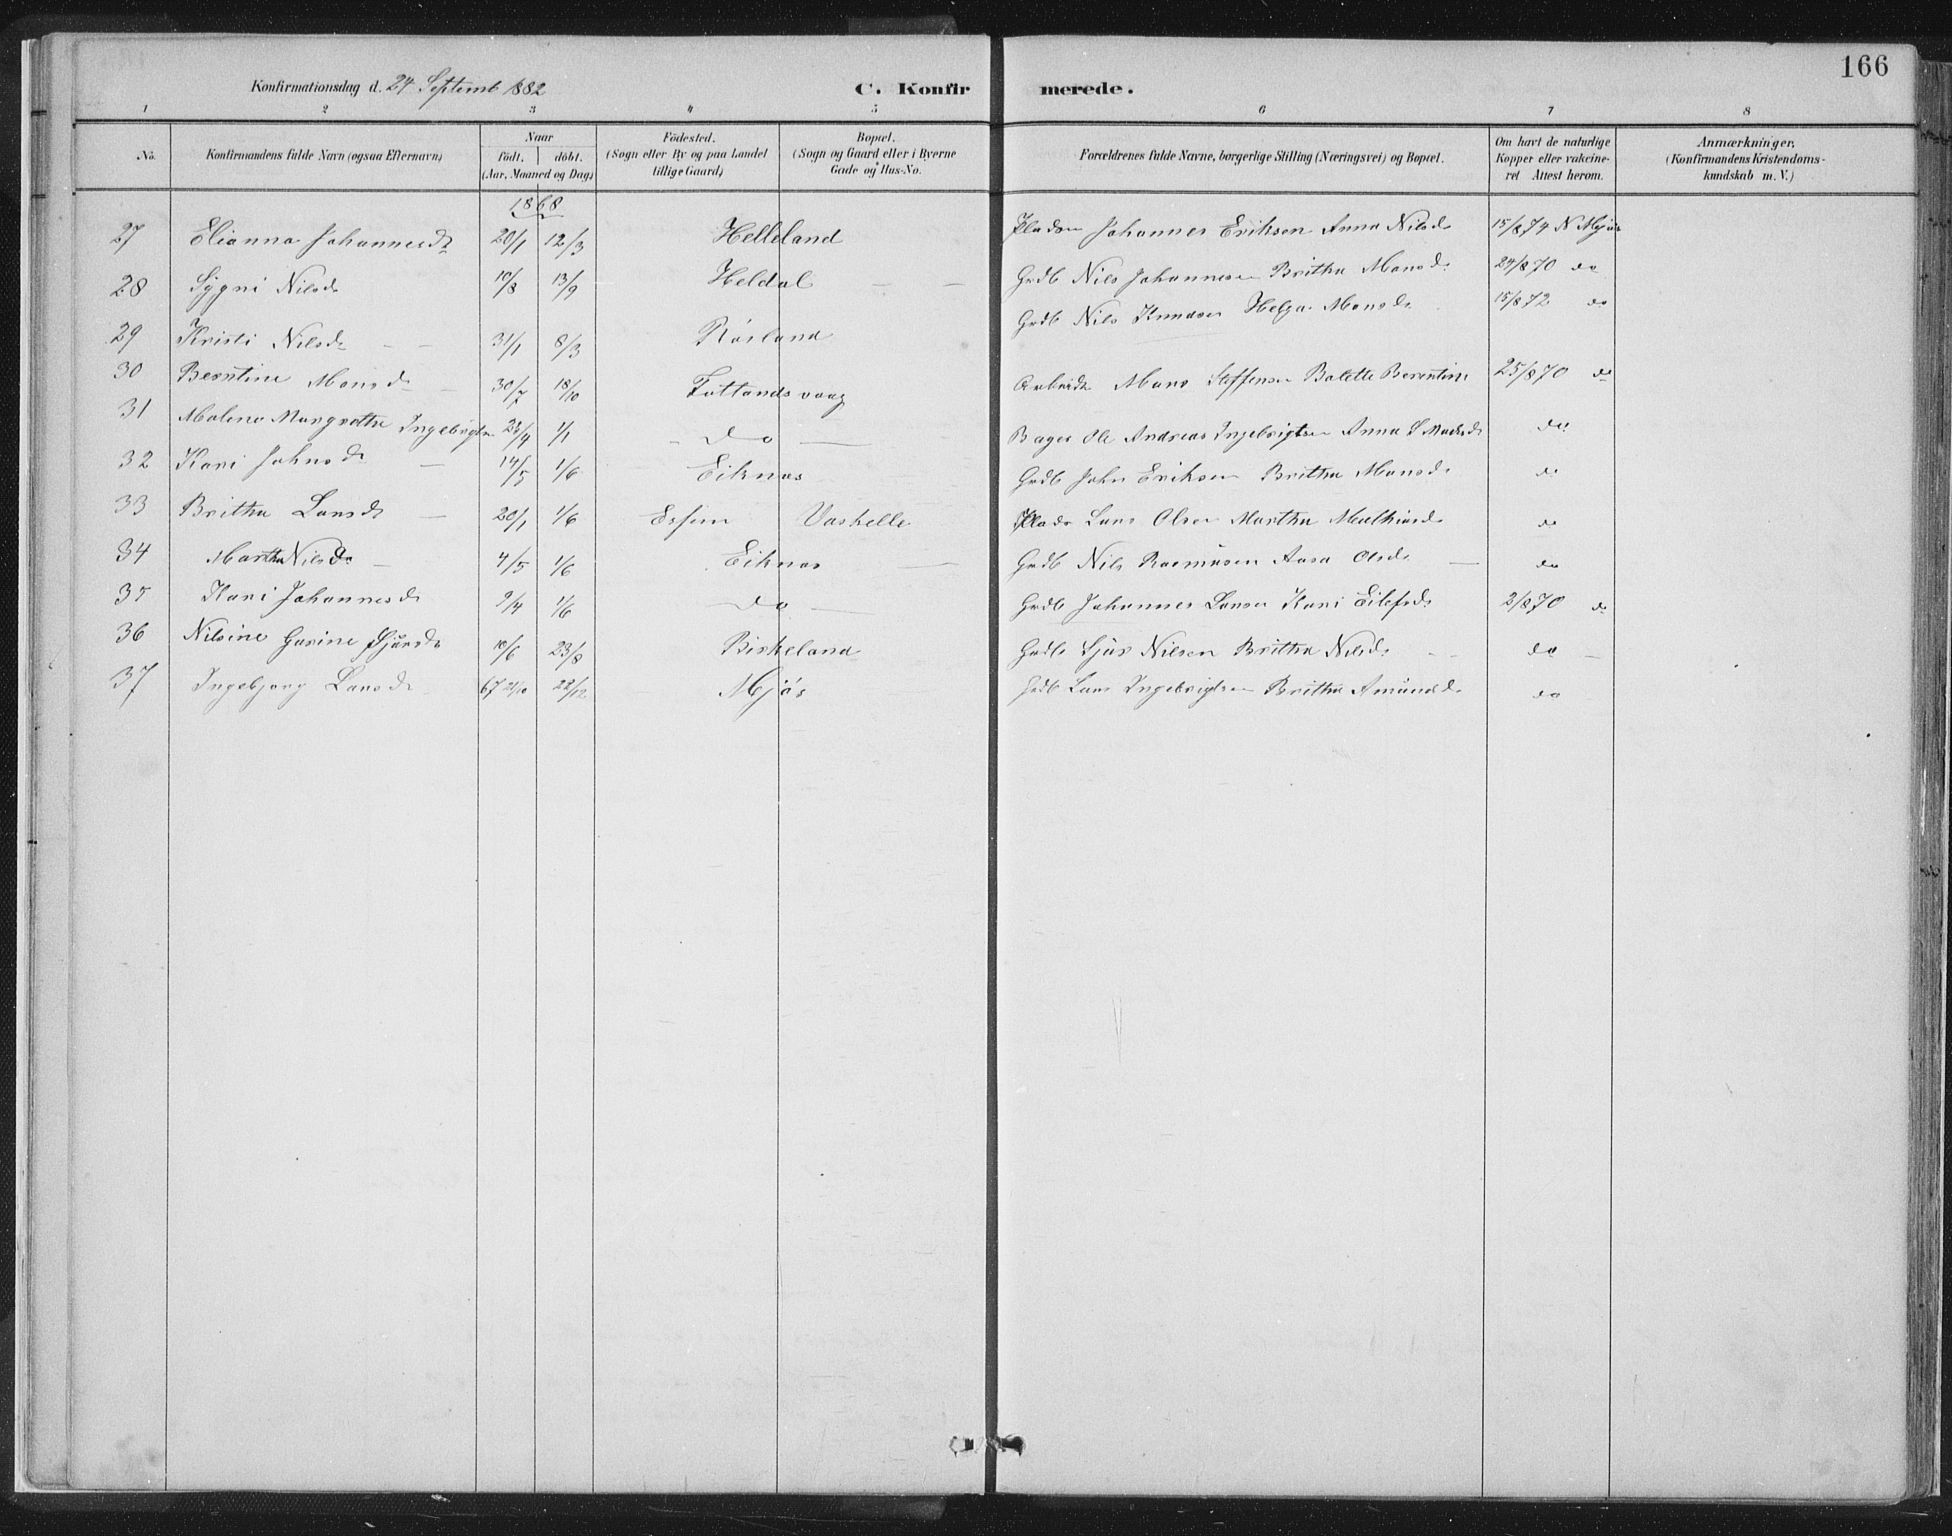 166
Konfirmationsdag d. 24 Septemb 1882 C. Konfirmerede.
1 2 3 4 5 6 7 8
No. Konfirmandens fulde Navn (ogsaa Efternavn) Naar födt. döbt. (Aar, Maaned og Dag) Födested. (Sogn eller By og paa Landet tillige Gaard) Bopæl. (Sogn og Gaard eller i Byerne Gade og Hus-No. Forældrenes fulde Navne, borgerlige Stilling (Næringsvei) og Bopæl. Om havt de naturlige Kopper eller vakcineret Attest herom. Anmærkninger, (Konfirmandens Kristendomskundskab m. V.)
1868
27 Elianna Johannesdr 20/1 12/3 Helleland Pladsm Johannes Eriksen Anna Nilsdr 15/8 74 N Mjös
28 Sygni Nilsdr 10/8 13/9 Heldal — — Grdb Nils Johannesen Britha Monsdr 24/8 70 do
29 Kristi Nilsdr — — 31/1 8/3 Rösland Grdb Nils Knudsen Helga Monsdr 15/8 72 do
30 Berntine Monsdr — 30/7 18/10 Totlandsvaag Arbeidr Mons Steffensen Bolette Berentine 25/8 70 do
31 Malene Margrethe Ingebrigtsen 23/4 1/1 — do — Bager Ole Andreas Ingebrigtsen Anna S Madsdr do
32 Kari Johnsdr — 14/5 1/6 Eiknes Grdb John Eriksen Britha Monsdr do
33 Britha Larsdr — 20/1 1/6 Vaskelle Plads Lars Olsen Martha Mathiasdr do
34 Martha Nilsdr — 4/5 1/6 Eiknes — Grdb Nils Rasmusen Aasa Olsdr — do
35 Kari Johannesdr 9/4 1/6 — do — Grdb Johannes Larsen Kari Eilefsdr 2/8 70 do
36 Nilsine Gurine Sjursdr 10/6 23/8 Birkeland Grdb Sjur Nilsen Britha Nilsdr — — do —
37 Ingebjorg Larsdr 67 21/10 22/12 Mjös Grdb Lars Ingebrigtsen Britha Amundsdr do